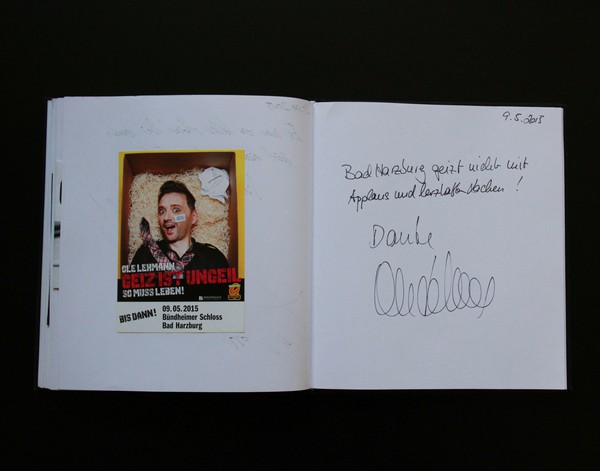 OLE LEHMANN
GEIZ IST UNGEIL
SO MUSS LEBEN!
BIS DANN!
09.05.2015
Bündheimer Schloss
Bad Harzburg
9.5.2015
Bad Harzburg geizt nicht mit
Applaus und herzhaftem Lachen!
Danke